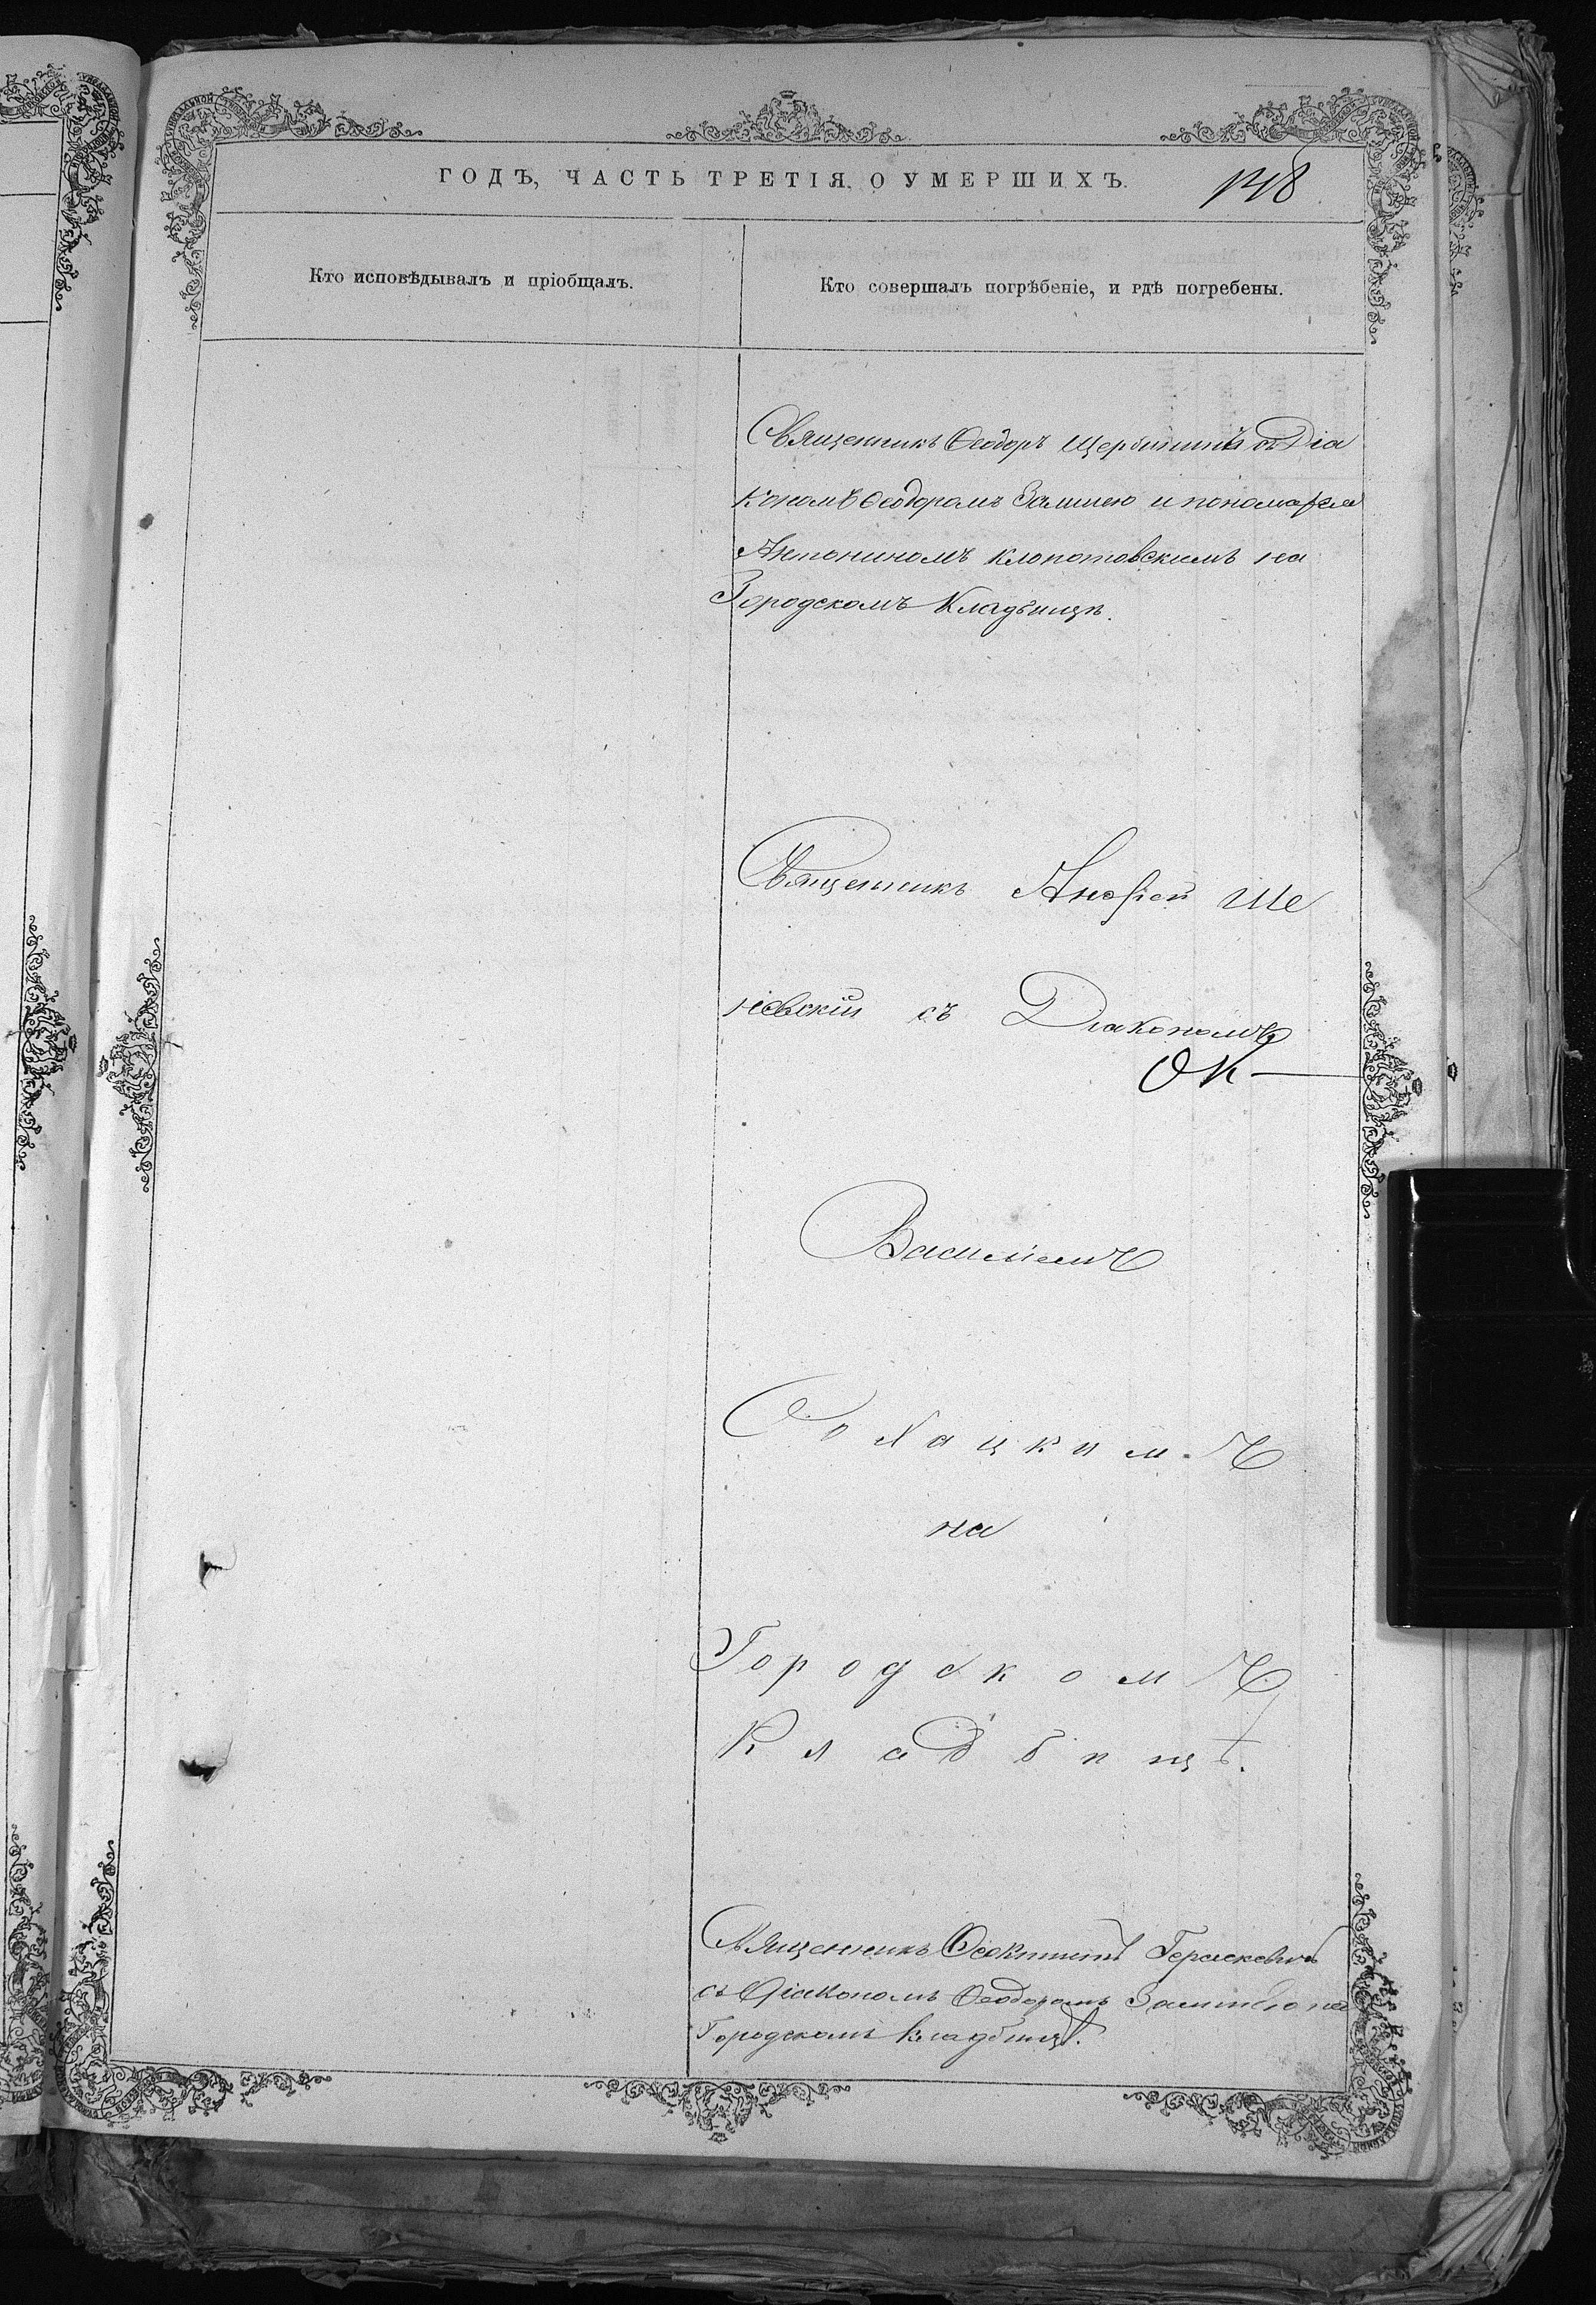 ГОДЪ, ЧАСТЬ ТРЕТІЯ, О УМЕРШИХЪ.
148
Кто исповѣдывалъ и пріобщалъ.
Кто совершалъ погрѣбеніе, и гдѣ погребены.
Священникъ Ѳеодоръ съ Діа
кономъ Ѳеодоромъ и пономаремъ
Антониномъ Клопотовскимъ на
Городскомъ Кладбищѣ.
Священникъ Андрей Ше
невскій съ Діакономъ
ОК
Василіемъ
на
Городскомъ
Кладбищѣ.
Священникъ Ѳеоктистъ Гераскевичъ
съ Діакономъ Ѳеодоромъ на
Городскомъ Кладбищѣ.